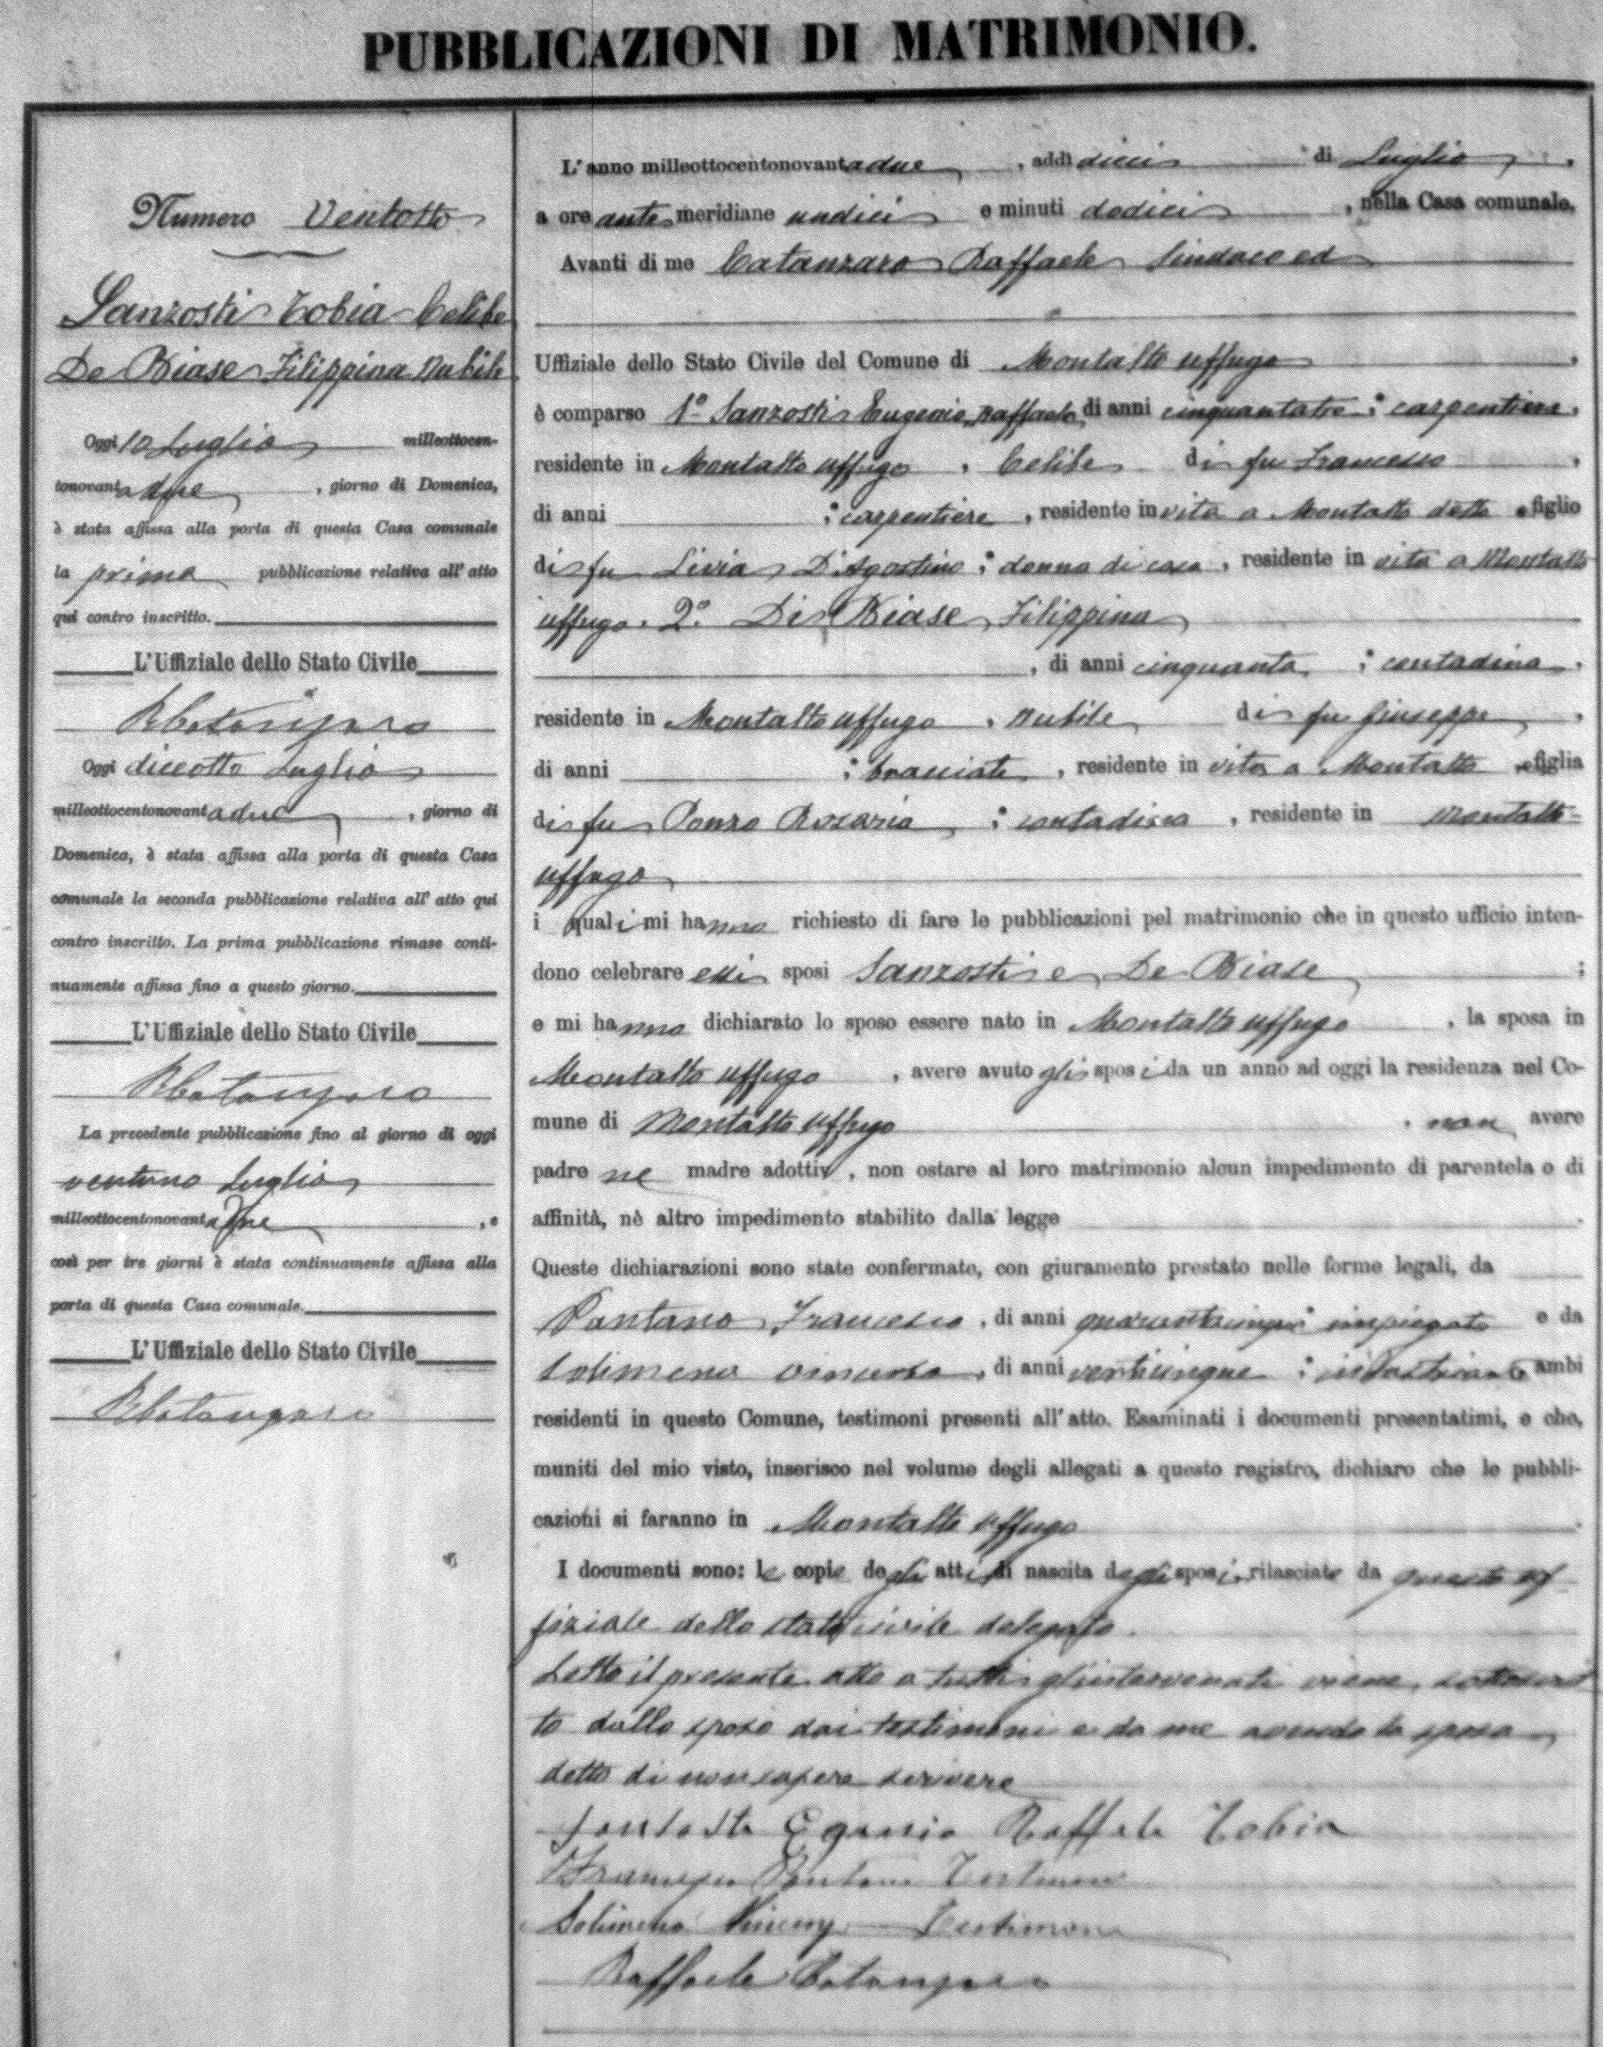 PUBBLICAZIONI DI MATRIMONIO.
Numero Ventotto
Sanzosti Tobia Celibe
De Biase Filippina Nubile
Oggi 10 Luglio milleottocen-
tonovantadue, giorno di Domenica,
è stata affissa alla porta di questa Casa comunale
la prima pubblicazione relativa all' atto
qui contro inscritto.
L'Uffiziale dello Stato Civile
RCatanzaro
Oggi diciotto Luglio
milleottocentonovantadue, giorno di
Domenica, è stata affissa alla porta di questa Casa
comunale la seconda pubblicazione relativa all' atto qui
contro inscritto. La prima pubblicazione rimase conti-
nuamente affissa fino a questo giorno.
L'Uffiziale dello Stato Civile
RCatanzaro
La precedente pubblicazione fino al giorno di oggi
ventuno Luglio
milleottocentonovantadue, e
così per tre giorni è stata continuamente affissa alla
porta di questa Casa comunale.
L'Uffiziale dello Stato Civile
RCatanzaro
L'anno milleottocentonovantadue, addì dieci di Luglio,
a ore antemeridiane undici e minuti dodici, nella Casa comunale.
Avanti di me Catanzaro Raffaele Sindaco ed
Uffiziale dello Stato Civile del Comune di Montalto uffugo,
è comparso 1º Sanzosti Eugenio, Raffaele, di anni cinquantatre; carpentiere,
residente in Montalto uffugo, Celibe di fu Francesco,
di anni ; carpentiere, residente in vita a Montalto detto e figlio
di fu Livia D'Agostino; donna di casa, residente in vita a Montalto
uffugo. 2º. Di Biase Filippina
, di anni cinquanta; contadina,
residente in Montalto uffugo, nubile di fu Giuseppe,
di anni ; bracciale, residente in vita a Montalto e figlia
di fu Ponzo Rosaria; contadina, residente in Montalto
uffugo
i quali mi hanno richiesto di fare le pubblicazioni pel matrimonio che in questo ufficio inten-
dono celebrare essi sposi Sanzosti e De Biase;
e mi hanno dichiarato lo sposo essere nato in Montalto uffugo, la sposa in
Montalto uffugo, avere avuto gli sposi da un anno ad oggi la residenza nel Co-
mune di Montalto uffugo, non avere
padre ne madre adottiv, non ostare al loro matrimonio alcun impedimento di parentela o di
affinità, nè altro impedimento stabilito dalla legge.
Queste dichiarazioni sono state confermate, con giuramento prestato nelle forme legali, da
Pantano Francesco, di anni quarantacinque; impiegato e da
Solimena Vincenzo, di anni venticinque; industriante ambi
residenti in questo Comune, testimoni presenti all'atto. Esaminati i documenti presentatimi, e che,
muniti del mio visto, inserisco nel volume degli allegati a questo registro, dichiaro che le pubbli-
cazioni si faranno in Montalto uffugo.
I documenti sono: le copie degli atti di nascita degli sposi, rilasciate da questo uf-
fiziale dello stato civile delegato.
Letto il presente atto a tutti gl'intervenuti viene sottoscrit
to dallo sposo dai testimoni e da me avendo la sposa
detto di non sapere scrivere
Sansosta Eganio Raffale Tobia
Francesco Pantano Testimone
Solimena Vincenzo Testimone
Raffaele Catanzaro